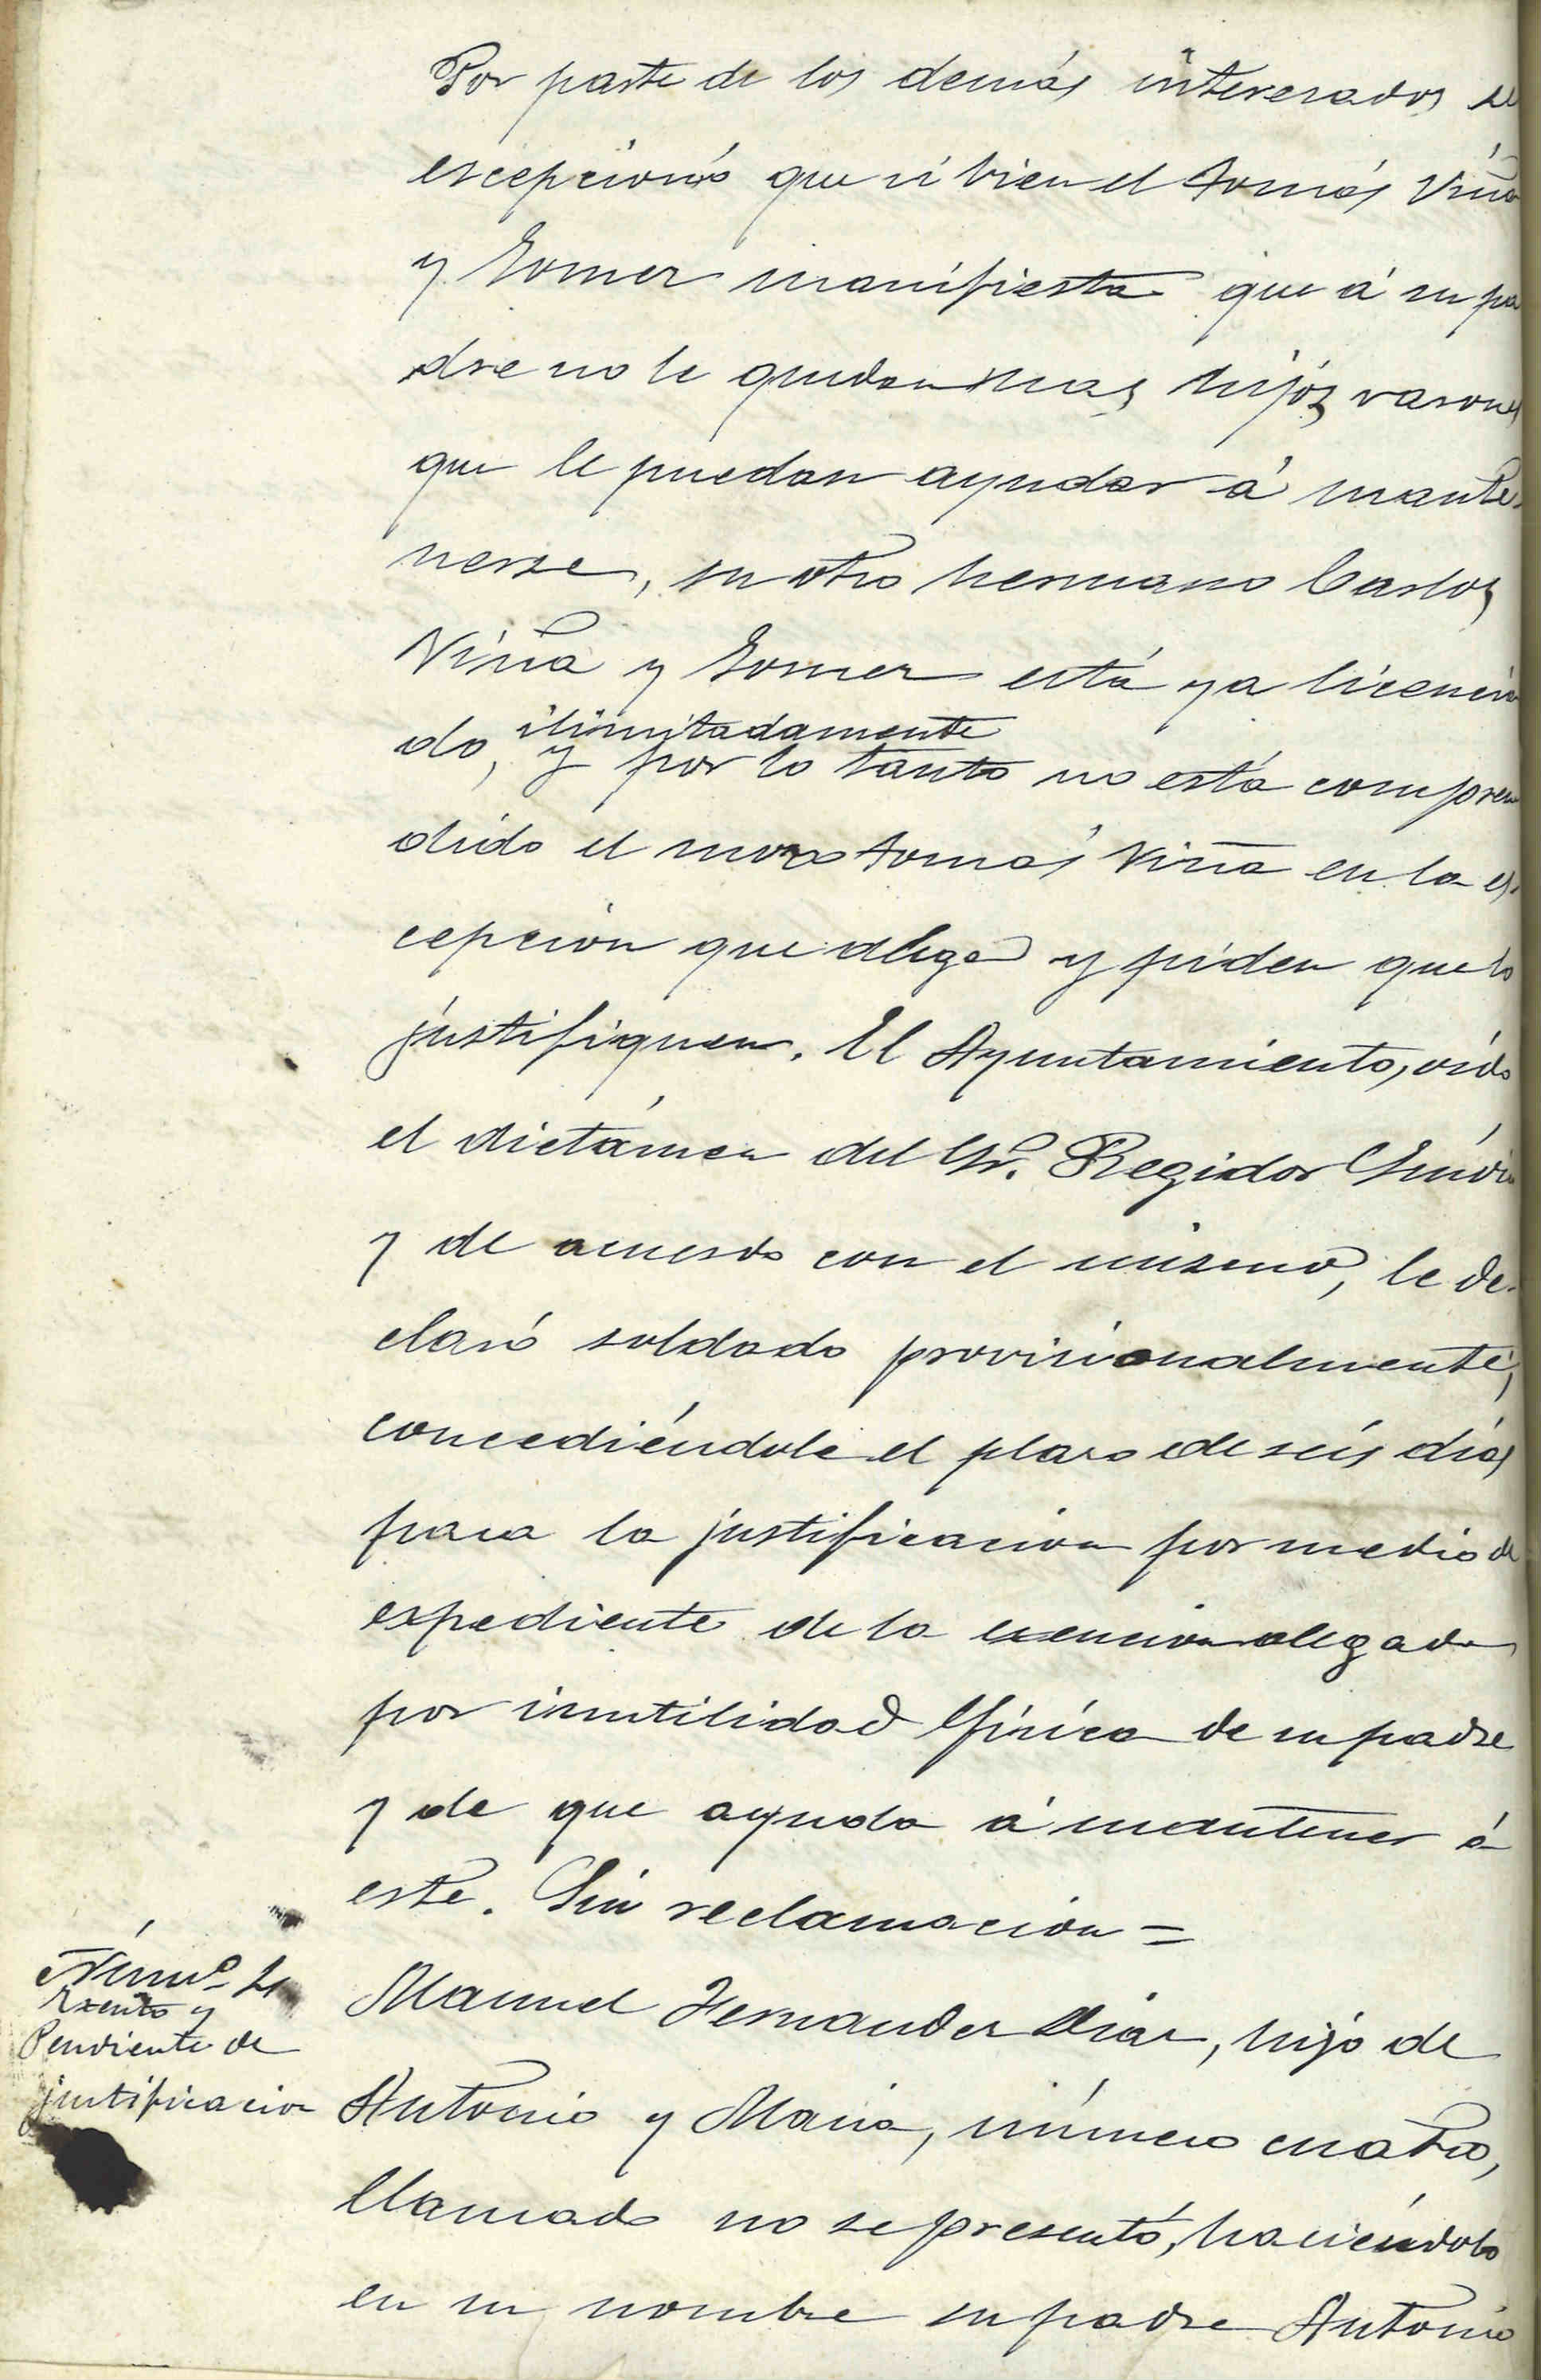 Por parte de los demás interesados se
escepcionó que si bien el Tomás Viña
y Gomez manifiesta que á su pa
dre no le quedan mas hijos varones
que le puedan ayudar á mante-
nerse, su otro hermano Carlos
Viña y Gomez está ya licencia
ilimitadamente
do, y por lo tanto no está compren
dido el mozo Tomás Viña en la es-
cepcion que alega y piden que lo
justifiquen. El Ayuntamiento, oido
el dictámen del Sr. Regidor Síndico
y de acuerdo con el mismo, le de-
claró soldado provisionalmente,
concediéndole el plazo de seis dias
para la justificacion por medio de
expediente de la exencion alegada
por inutilidad física de su padre
y de que ayuda á mantener á
este. Sin reclamacion =
Númº 4
Exento y
Pendiente de
justificacion
Manuel Fernandez Diaz, hijo de
Antonio y Maria, número cuatro,
llamado no se presentó, haciéndolo
en su nombre su padre Antonio